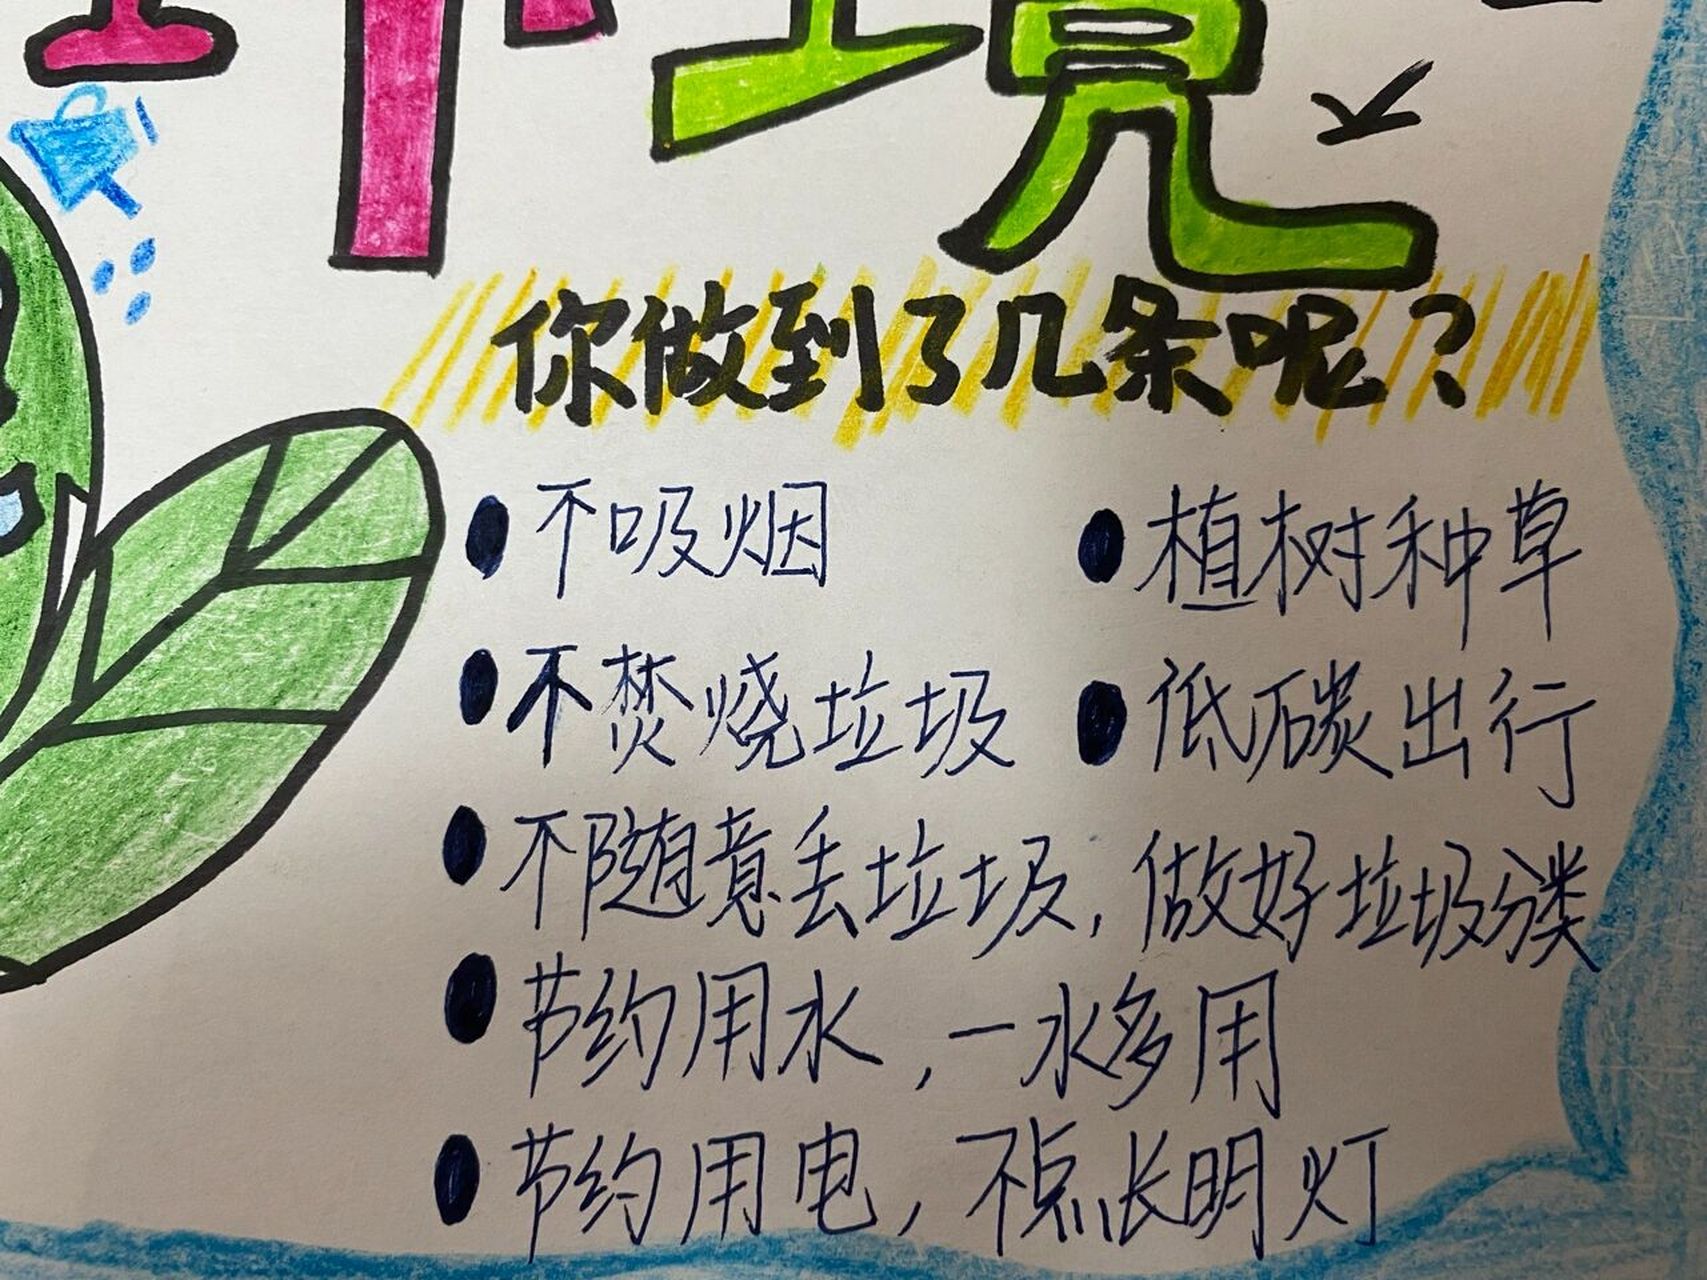 环境
你做到了几条呢？
不吸烟
植树种草
不焚烧垃圾
低碳出行
不随意丢垃圾，做好垃圾分类
节约用水，一水多用
节约用电，不点长明灯